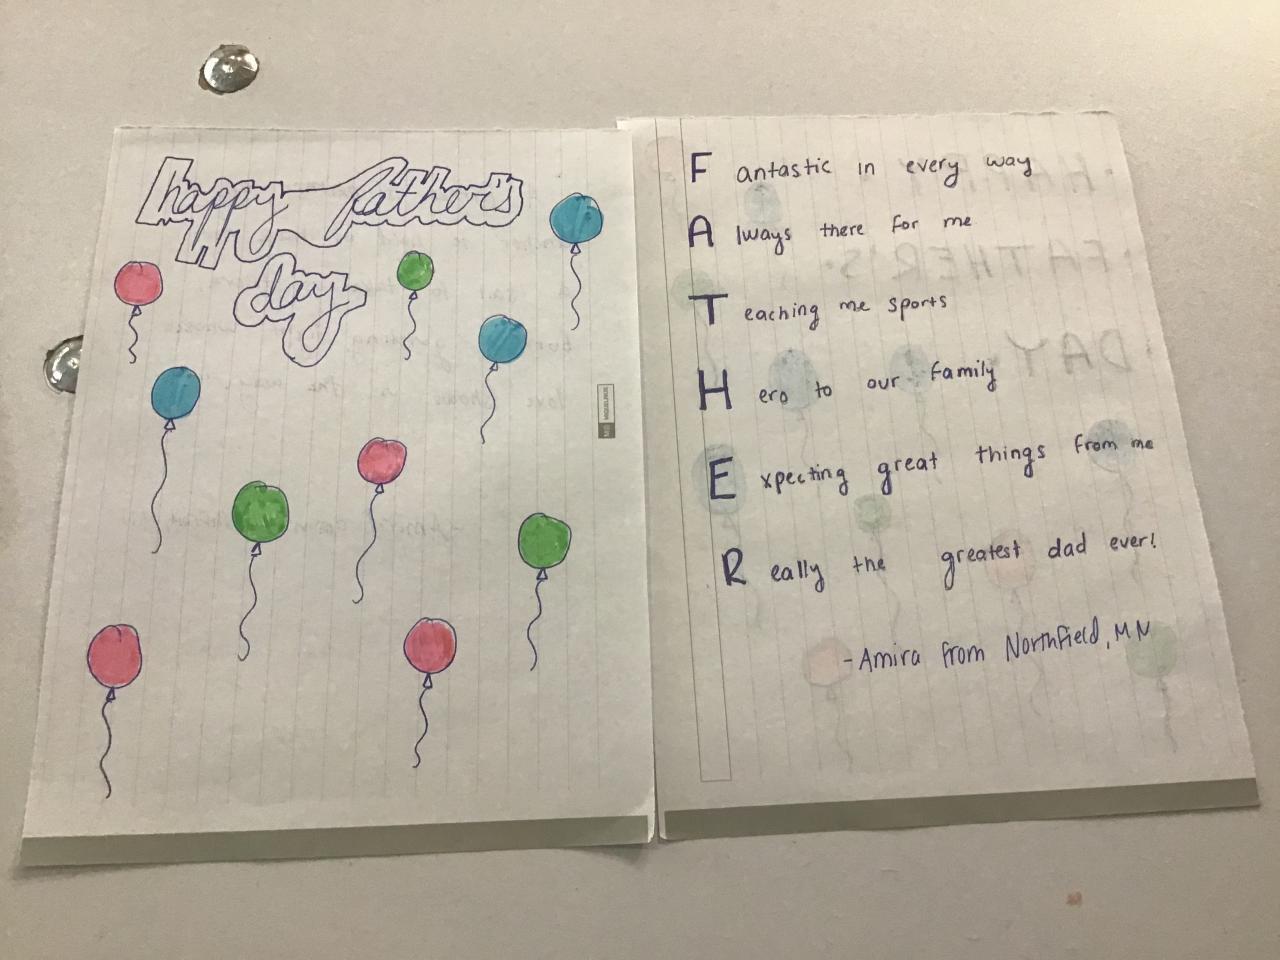 happy father's
day
MIQUELRIUS
Fantastic in every way
Always there for me
Teaching me sports
Hero to our family
Expecting great things from me
Really the greatest dad ever!
-Amira from Northfield, MN
· HAPPY
· FATHER'S ·
· DAY